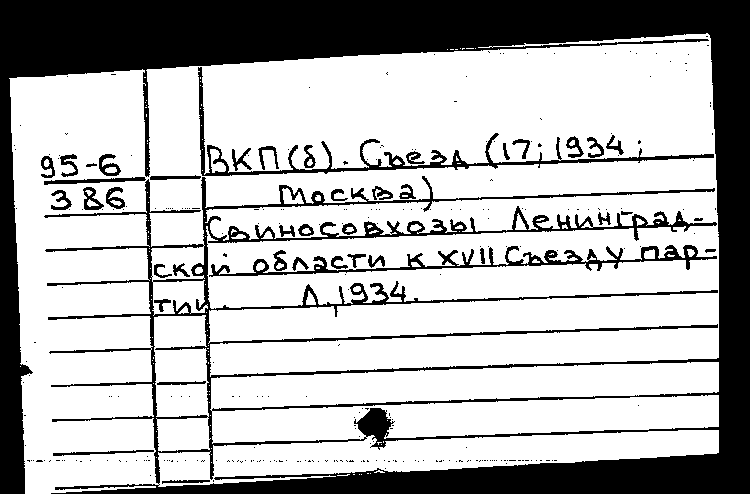 95-6 ВКП(б). Съезд (17; 1934;
386 Москва)
Свиносовхозы Ленинград-
ской области к XVII Съезду пар-
тии. Л., 1934.